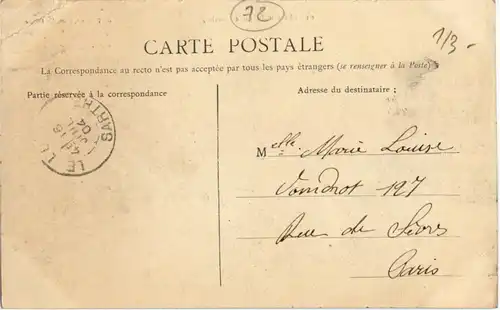 72
1/3-
CARTE POSTALE
La Correspondance au recto n'est pas acceptée par tous les pays étrangers (se renseigner à la Poste)
Partie réservée à la correspondance
Adresse du destinataire ;
LE LU
SARTHE
16
04
Melle. Marie Louise
127
Rue de
Paris